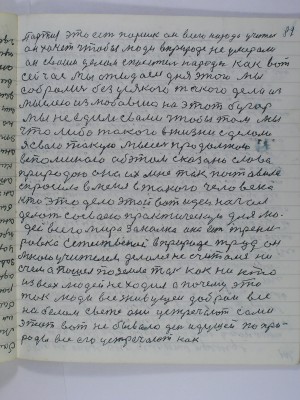 81
Партия это есть парник он всего народа учител
он хочет чтобы люди в природе не умирали
он своим делом спасител народа как вот
сейчас мы ожидаем дня этого мы
собрались без всякого такого дела из
мыслию из любовию на этот бугор
мы не едим с вами чтобы там мы
что либо такого в жизни сделали
я свою такую мысль продолжаю
вспоминаю об этом сказаны слова
природою она их мне так поставила
спросила в меня в такого человека
кто это дело этой вот идеи начал
делать со своею практическую для лю
дей всего мира закалка она есть трени
ровка естественной в природе труд он
многих учителем делался не считался ни
с чем а пошел по земле так как ни кто
из всех людей не ходил а почему это
так люди все живущеи добрам все
на белом свете они устречают само
этот вот не бывало дел идущей по при
роды все его устречают как